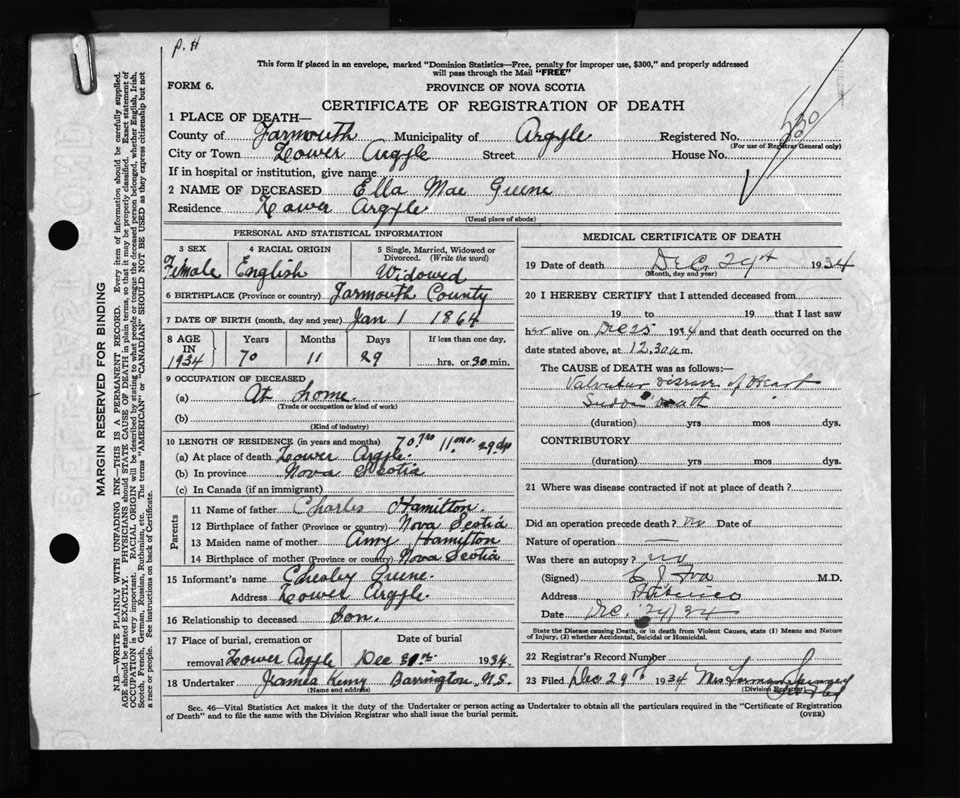 P. H
This form if placed in an envelope, marked "Dominion Statistics—Free, penalty for improper use, $300," and properly addressed
will pass through the Mail "FREE"
FORM 6.
PROVINCE OF NOVA SCOTIA
CERTIFICATE OF REGISTRATION OF DEATH
1 PLACE OF DEATH—
County of Yarmouth Municipality of Argyle Registered No.
(For use of Registrar General only)
City or Town Lower Argyle Street House No.
If in hospital or institution, give name
2 NAME OF DECEASED Ella Mae Greene
Residence Lower Argyle
(Usual place of abode)
PERSONAL AND STATISTICAL INFORMATION
3 SEX 4 RACIAL ORIGIN 5 Single, Married, Widowed or
Divorced. (Write the word)
Female English Widowed
6 BIRTHPLACE (Province or country) Yarmouth County
7 DATE OF BIRTH (month, day and year) Jan 1 1864
8 AGE Years Months Days If less than one day,
IN
1934 70 11 29 hrs. or 30 min.
9 OCCUPATION OF DECEASED
(a) At home.
(Trade or occupation or kind of work)
(b)
(Kind of industry)
10 LENGTH OF RESIDENCE (in years and months) 70 yrs 11 mo. 29 dy
(a) At place of death Lower Argyle.
(b) In province Nova Scotia
(c) In Canada (if an immigrant)
Parents
11 Name of father Charles Hamilton.
12 Birthplace of father (Province or country) Nova Scotia
13 Maiden name of mother Amy Hamilton
14 Birthplace of mother (Province or country) Nova Scotia
15 Informant's name Chesley Greene.
Address Lower Argyle.
16 Relationship to deceased Son.
17 Place of burial, cremation or Date of burial
removal Lower Argyle Dec 31st 1934.
18 Undertaker James Kenny Barrington N.S.
(Name and address)
MEDICAL CERTIFICATE OF DEATH
19 Date of death Dec 29th 1934
(Month, day and year)
20 I HEREBY CERTIFY that I attended deceased from
19 to 19 that I last saw
her alive on Dec 25 1934 and that death occurred on the
date stated above, at 12.30 a m.
The CAUSE OF DEATH was as follows:—
Valvular Disease of Heart
Sudden death
(duration) yrs mos dys.
CONTRIBUTORY
(duration) yrs mos dys.
21 Where was disease contracted if not at place of death?
Did an operation precede death? no Date of
Nature of operation —
Was there an autopsy? no
(Signed) M.D.
Address Pubnico
Date Dec. 29/34
State the Disease causing Death, or in death from Violent Causes, state (1) Means and Nature
of Injury, (2) whether Accidental, Suicidal or Homicidal.
22 Registrar's Record Number
23 Filed Dec 29th 1934 Mrs
(Division Registrar)
Sec. 46—Vital Statistics Act makes it the duty of the Undertaker or person acting as Undertaker to obtain all the particulars required in the "Certificate of Registration
of Death" and to file the same with the Division Registrar who shall issue the burial permit.
(OVER)
MARGIN RESERVED FOR BINDING
N.B.—WRITE PLAINLY WITH UNFADING INK—THIS IS A PERMANENT RECORD. Every item of information should be carefully supplied.
AGE should be stated EXACTLY. PHYSICIANS should STATE CAUSE OF DEATH in plain terms, so that it may be properly classified. Exact statement of
OCCUPATION is very important. RACIAL ORIGIN will be described by stating to what people or tongue the deceased person belonged, whether English, Irish,
Scotch, French, German, Russian, Ruthenian, etc. The terms "AMERICAN" or "CANADIAN" SHOULD NOT BE USED as they express citizenship but not
a race or people. See instructions on back of Certificate.